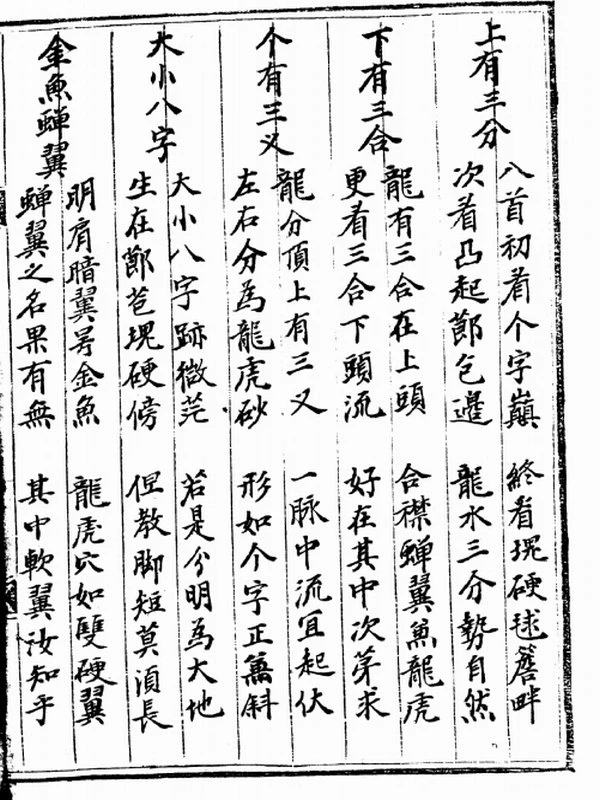 上有三分
八首初看个字巔 終看塊硬球簷畔
次看凸起節包邊 龍水三分勢自然
下有三合
龍有三合在上頭 合襟蟬翼兼龍虎
更看三合下頭流 好在其中次芽求
个有三义
龍分頂上有三义 一脉中流宜起伏
左右分為龍虎砂 形如个字正無斜
大小八字
大小八字跡微茫 若是分明為大地
生在節苞塊硬傍 但教脚短莫須長
金魚蟬翼
明肩暗翼号金魚 龍虎穴如雙硬翼
蟬翼之名果有無 其中軟翼汝知乎